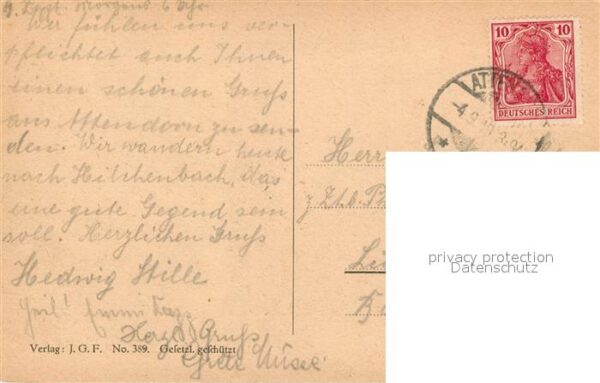 4. Sept. Morgens 6 Uhr
Wir fühlen uns ver-
pflichtet auch Ihnen
einen schönen Gruß
aus Attendorn zu sen-
den. Wir wandern heute
nach Hilchenbach, das
eine gute Gegend sein
soll. Herzlichen Gruß
Hedwig Stille
Heil! Emmi
Herzl. Gruß
Grete
Verlag: J. G. F. No. 389. Gesetzl. geschützt
10 10
DEUTSCHES REICH
ATTEN
Herr
z. Zt.
privacy protection
Datenschutz